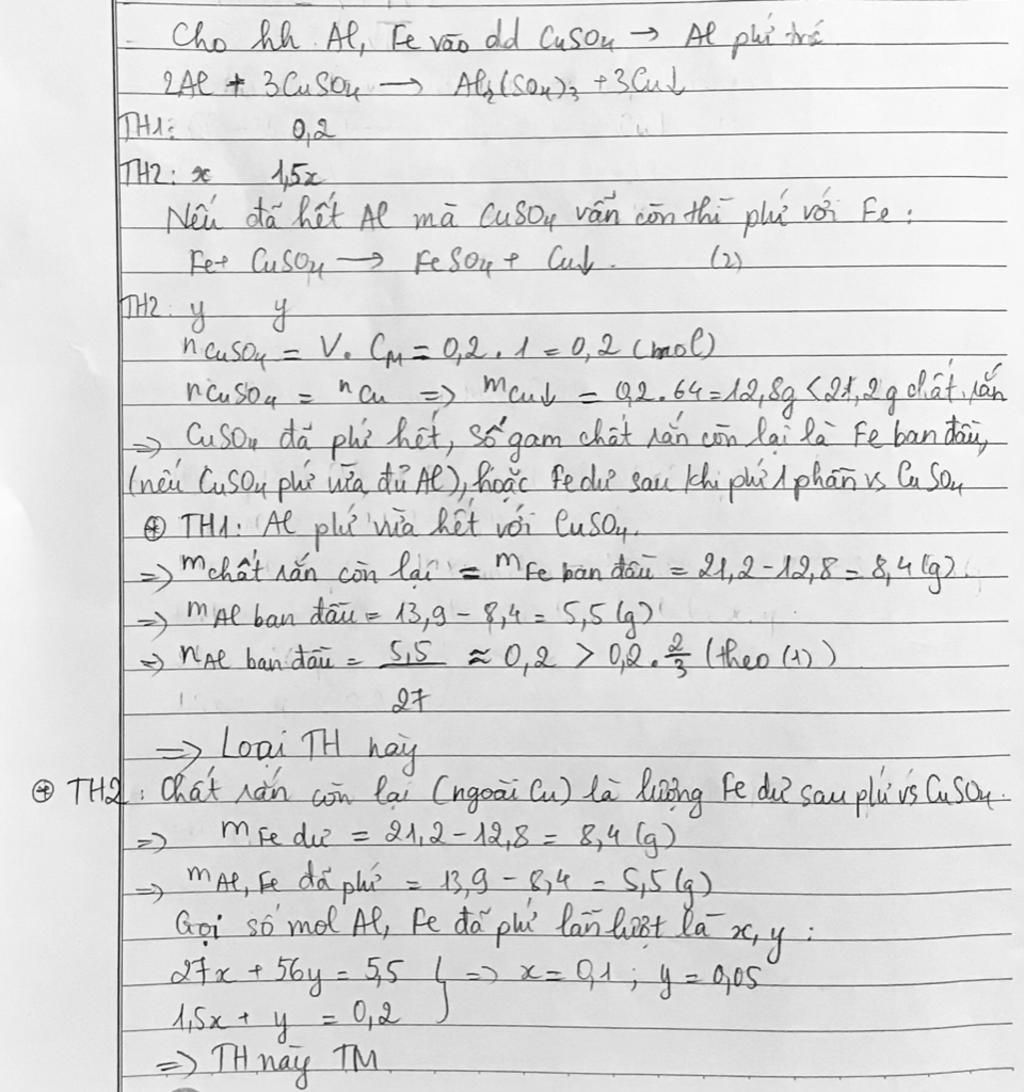 Cho hh Al, Fe vào dd CuSO4 → Al phứ trc
2Al + 3CuSO4 → Al2(SO4)3 + 3Cu↓
TH1: 0,2
TH2: x 1,5x
Nếu đã hết Al mà CuSO4 vẫn còn thì phứ với Fe:
Fe + CuSO4 → FeSO4 + Cu↓. (2)
TH2: y y
nCuSO4 = V. CM = 0,2 . 1 = 0,2 (mol)
nCuSO4 = nCu => mCu↓ = 0,2.64 = 12,8g < 21,2g chất rắn
=> CuSO4 đã phứ hết, số gam chất rắn còn lại là Fe ban đầu,
(nếu CuSO4 phứ vừa đủ Al), hoặc Fe dư sau khi phứ 1 phần vs CuSO4
⊕ TH1: Al phứ vừa hết với CuSO4.
=> mchất rắn còn lại = mFe ban đầu = 21,2 - 12,8 = 8,4 (g).
=> mAl ban đầu = 13,9 - 8,4 = 5,5 (g)
=> nAl ban đầu = 5,5/27 ≈ 0,2 > 0,2. 2/3 (theo (1))
=> Loại TH này
⊕ TH2: Chất rắn còn lại (ngoài Cu) là lượng Fe dư sau phứ vs CuSO4.
=> mFe dư = 21,2 - 12,8 = 8,4 (g)
=> mAl, Fe đã phứ = 13,9 - 8,4 = 5,5 (g)
Gọi số mol Al, Fe đã phứ lần lượt là x, y:
27x + 56y = 5,5 } => x = 0,1 ; y = 0,05
1,5x + y = 0,2
=> TH này TM